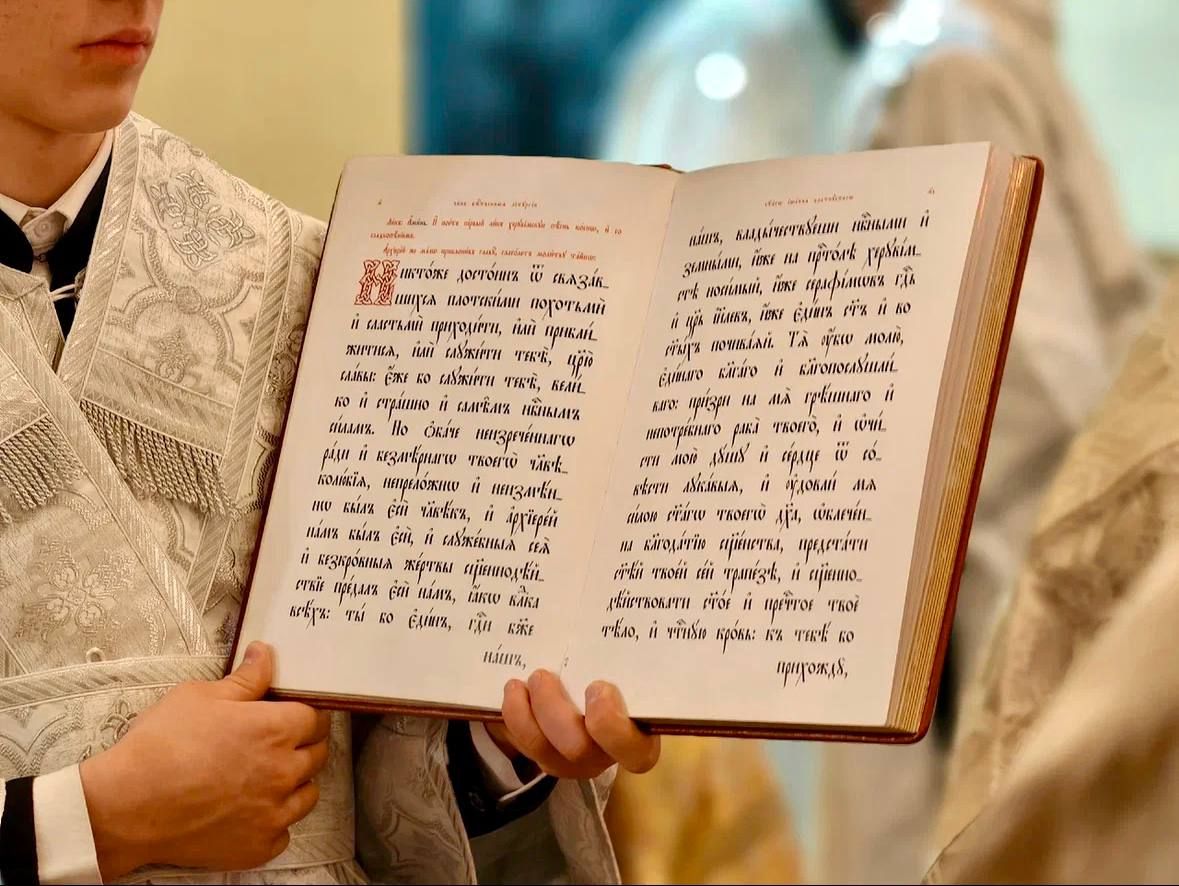 Ликъ: Аминь. И поетъ первый ликъ херувімскую пѣснь косно, и со
сладкопѣніемъ.
Никто́же досто́инъ ѿ свѧза́в_
шихсѧ плотски́ми похотьмѝ
и҆ сластьмѝ приходи́ти, и҆лѝ прибли́_
житисѧ, и҆лѝ служи́ти тебѣ̀, цр҃ю̀
сла́вы: є҆́же бо служи́ти тебѣ̀, вели́_
ко и҆ стра́шно и҆ самѣ̑мъ нбⷭ҇нымъ
си́ламъ. Но ѻ҆ба́че неизрече́ннагѡ
ра́ди и҆ безмѣ́рнагѡ твоегѡ̀ чл҃вѣ_
колю́бїѧ, непрело́жнѡ и҆ неизмѣ́н_
нѡ бы́лъ є҆сѝ чл҃вѣ́къ, и҆ а҆рхїере́й
на́мъ бы́лъ є҆сѝ, и҆ слꙋже́бныѧ сеѧ̀
и҆ безкро́вныѧ же́ртвы сщ҃еннодѣ́й_
ствїе пре́далъ є҆сѝ на́мъ, ꙗ҆́кѡ влⷣка
всѣ́хъ: ты́ бо є҆ди́нъ, гдⷭ҇и бж҃е
на́шъ,
на́шъ, влады́чествꙋеши нбⷭ҇ными и҆
земны́ми, и҆́же на прⷭ҇то́лѣ херꙋві́м_
стѣ носи́мый, и҆́же серафі́мѡвъ гдⷭ҇ь
и҆ цр҃ь і҆и҃левъ, и҆́же є҆ди́нъ ст҃ъ и҆ во
ст҃ы́хъ почива́ѧй. Тѧ̀ ᲂу҆̀бѡ молю̀,
є҆ди́наго бл҃га́го и҆ бл҃гопослꙋшли́_
ваго: при́зри на мѧ̀ грѣ́шнаго и҆
непотре́бнаго раба̀ твоего̀, и҆ ѡ҆чи́_
сти мою̀ дꙋ́шꙋ и҆ се́рдце ѿ со́_
вѣсти лꙋка́выѧ, и҆ ᲂу҆довли́ мѧ
си́лою ст҃а́гѡ твоегѡ̀ дх҃а, ѡ҆блече́н_
на бл҃года́тїю сщ҃е́нства, предста́ти
ст҃ѣ́й твое́й се́й трапе́зѣ, и҆ сщ҃енно_
дѣ́йствовати ст҃о́е и҆ пречⷭ҇тое твоѐ
тѣ́ло, и҆ чⷭ҇тнꙋ́ю кро́вь: къ тебѣ́ бо
прихождꙋ̀,